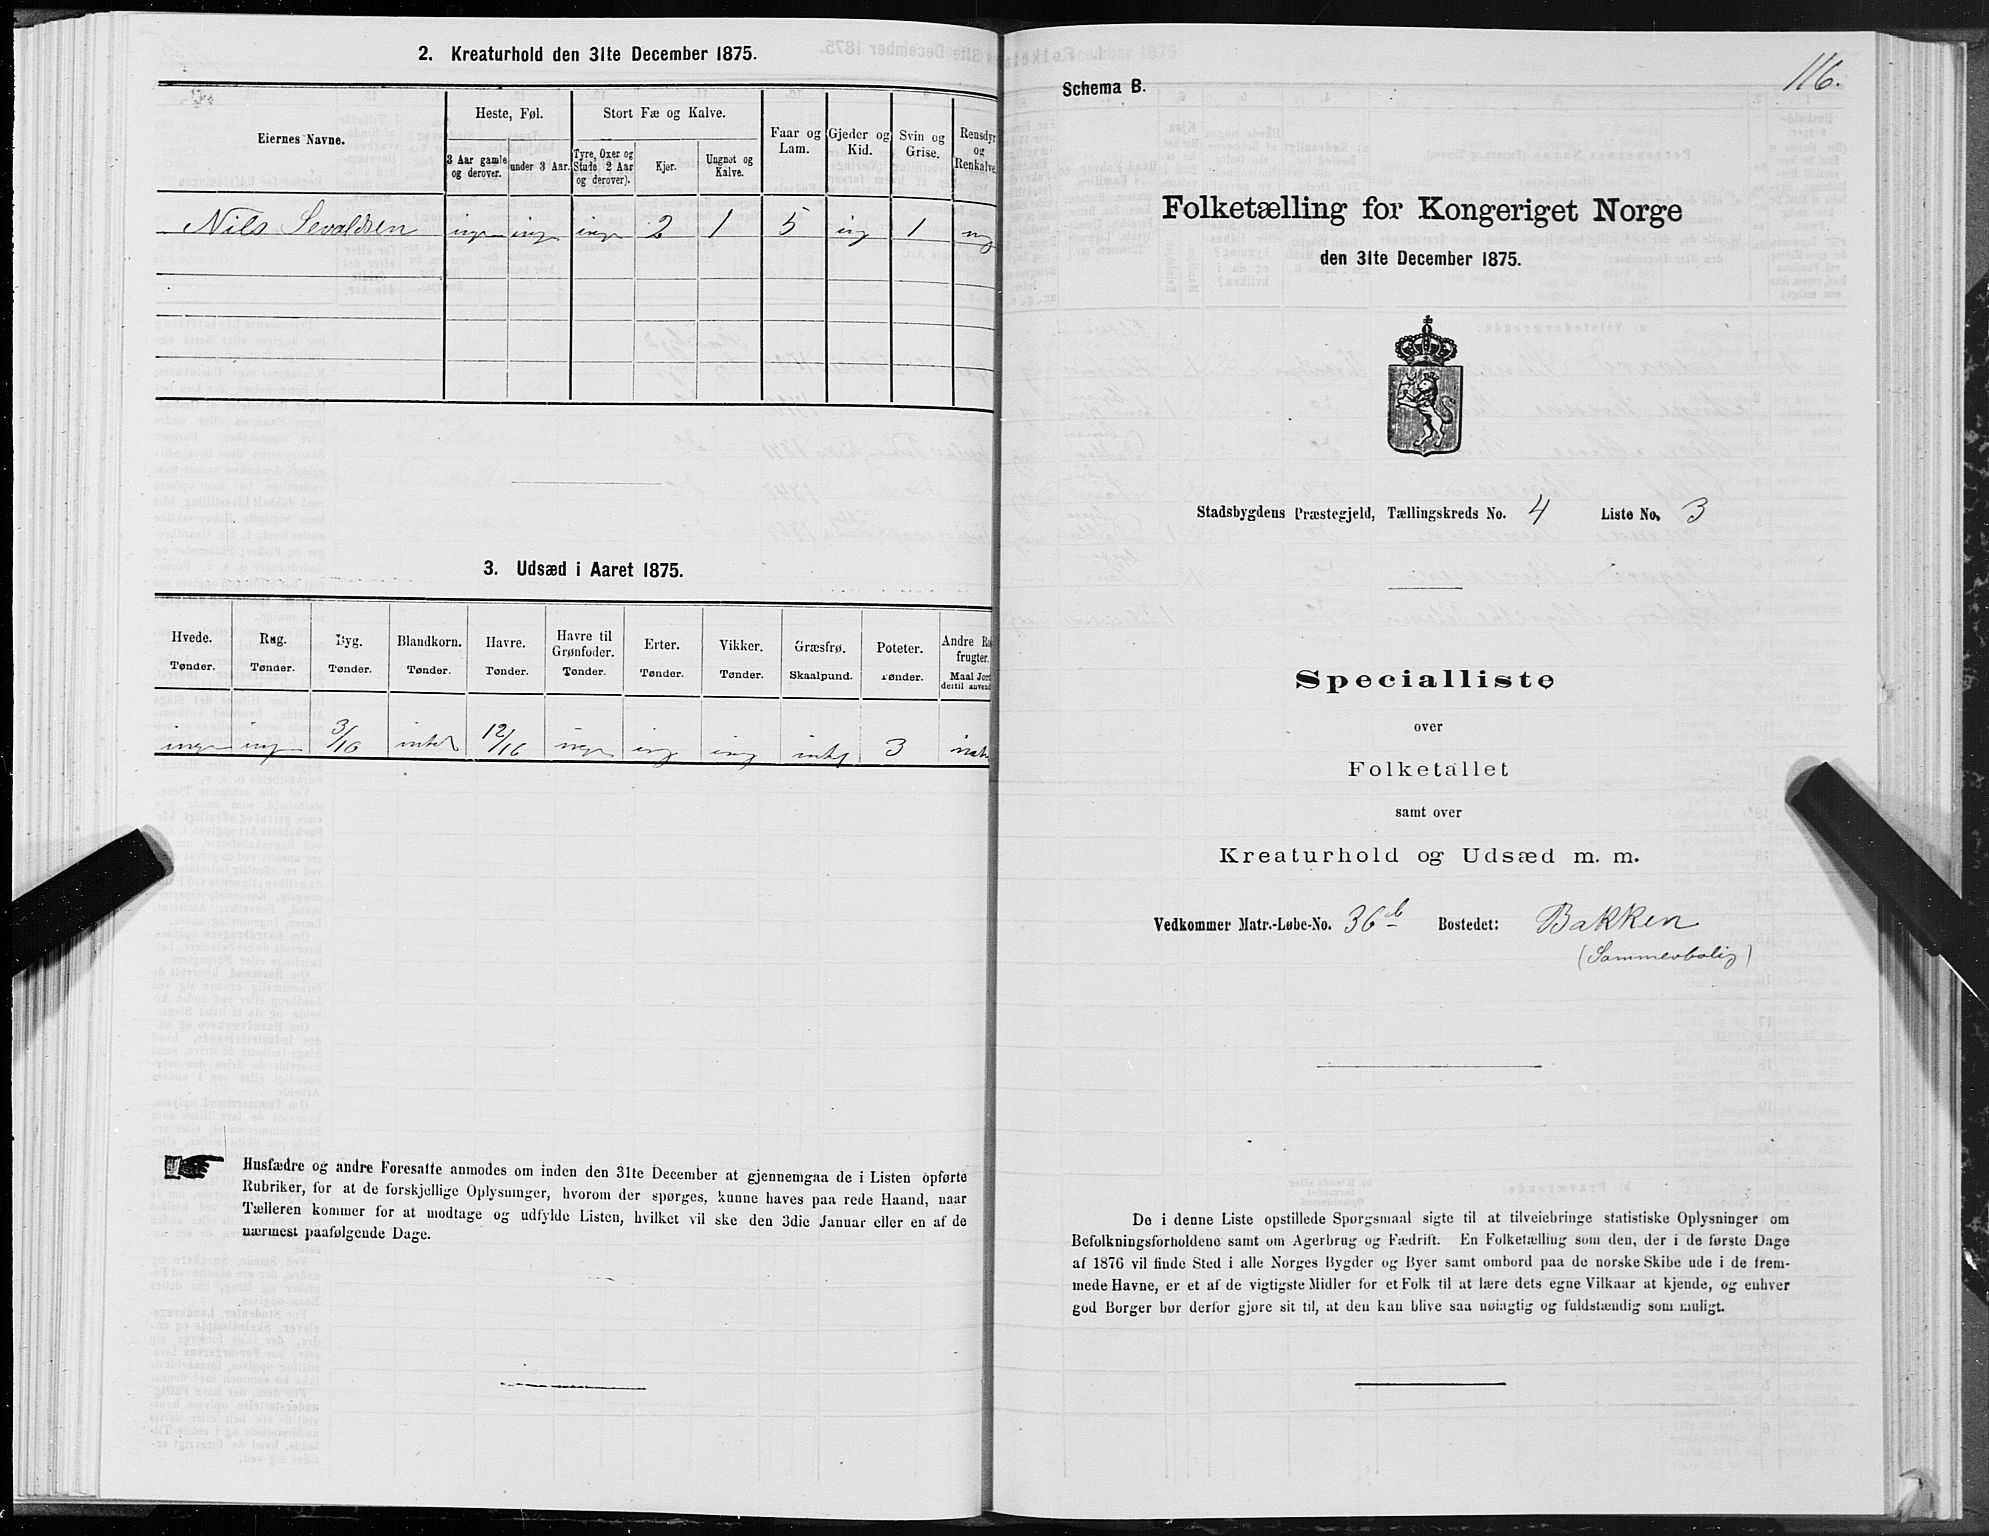 2. Kreaturhold den 31te December 1875.
Eiernes Navne.
Heste, Føl.
Stort Fæ og Kalve.
Faar og Lam.
Gjeder og Kid.
Svin og Grise.
Rensdyr og Renkalve.
3 Aar gamle og derover.
under 3 Aar.
Tyre, Oxer og Stude 2 Aar og derover).
Kjer.
Ungnøt og Kalve.
Nils Sevaldsen ingen ing inge 2 1 5 ing 1 ing
3. Udsæd i Aaret 1875.
Hvede. Rug. Byg. Blandkorn. Havre. Havre til Grønfoder. Erter. Vikker. Græsfrø. Poteter. Andre Ro frugter.
Tønder. Tønder. Tønder. Tønder. Tønder. Tønder. Tønder. Tønder. Skaalpund. Tønder. Maal Jord dertil anvend
ingen ing 3/16 intet 12/16 inge ing ing intet 3 intet
Husfædre og andre Foresatte anmodes om inden den 31te December at gjennemgaa de i Listen opførte
Rubriker, for at de forskjellige Oplysninger, hvorom der spørges, kunne haves paa rede Haand, naar
Tælleren kommer for at modtage og udfylde Listen, hvilket vil ske den 3die Januar eller en af de
nærmest paafølgende Dage.
116.
Schema B.
Folketælling for Kongeriget Norge
den 31te December 1875.
Stadsbygdens Præstegjeld, Tællingskreds No. 4 Liste No. 3
Specialliste
over
Folketallet
samt over
Kreaturhold og Udsæd m. m.
Vedkommer Matr.-Løbe-No. 36b Bostedet: Bakken
(Sommerbolig)
De i denne Liste opstillede Spørgsmaal sigte til at tilveiebringe statistiske Oplysninger om
Befolkningsforholdene samt om Agerbrug og Fædrift. En Folketælling som den, der i de første Dage
af 1876 vil finde Sted i alle Norges Bygder og Byer samt ombord paa de norske Skibe ude i de frem-
mede Havne, er et af de vigtigste Midler for et Folk til at lære dets egne Vilkaar at kjende, og enhver
god Borger bør derfor gjøre sit til, at den kan blive saa nøiagtig og fuldstændig som muligt.